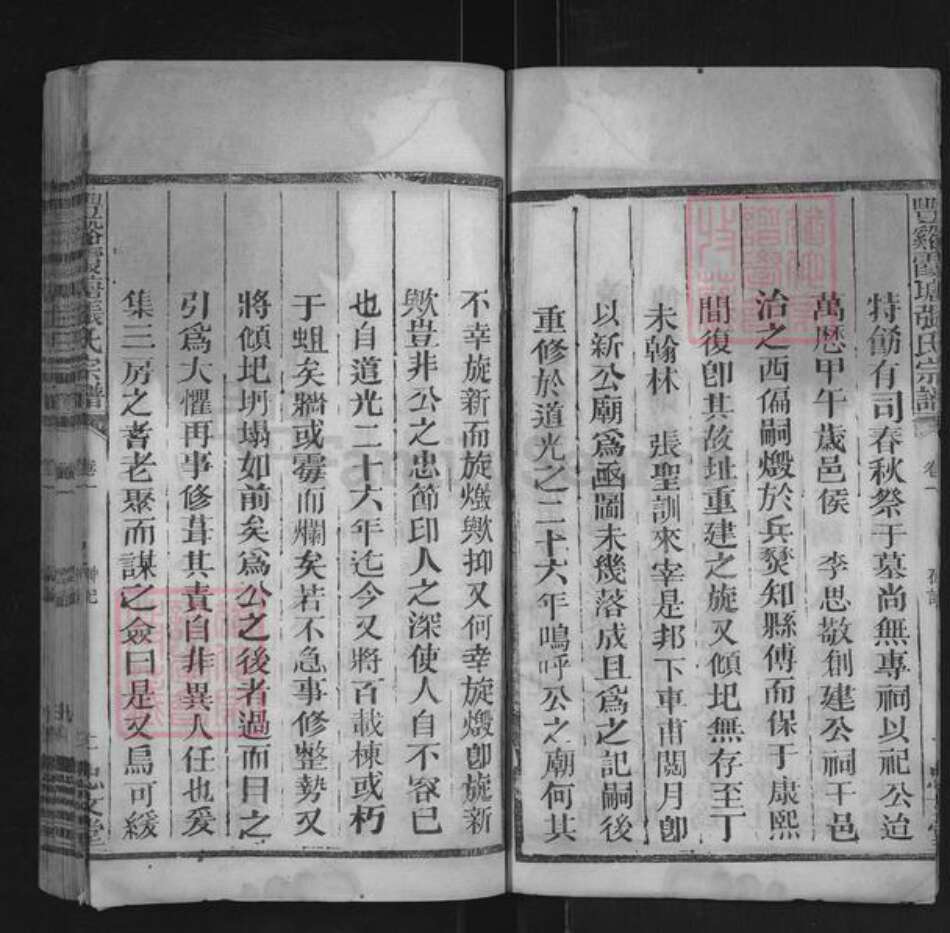 豐谿霞塘張氏宗譜
卷一
特勅有司春秋祭于墓尚無專祠以祀公迨
萬厯甲午歲邑侯 李思敬創建公祠于邑
治之西偏嗣燬於兵燹知縣傅而保于康熙
間復卽其故址重建之旋又傾圯無存至丁
未翰林 張聖訓來宰是邦下車甫閱月卽
以新公廟爲亟圖未幾落成且爲之記嗣後
重修於道光之二十六年嗚呼公之廟何其
不幸旋新而旋燬歟抑又何幸旋燬卽旋新
歟豈非公之忠節印人之深使人自不容已
也自道光二十六年迄今又將百載棟或朽
于蛆矣牆或霉而爛矣若不急事修整勢又
將傾圯坍塌如前矣爲公之後者過而目之
引爲大懼再事修葺其責自非異人任也爰
集三房之耆老聚而謀之僉曰是又烏可緩
氏宗譜
卷一